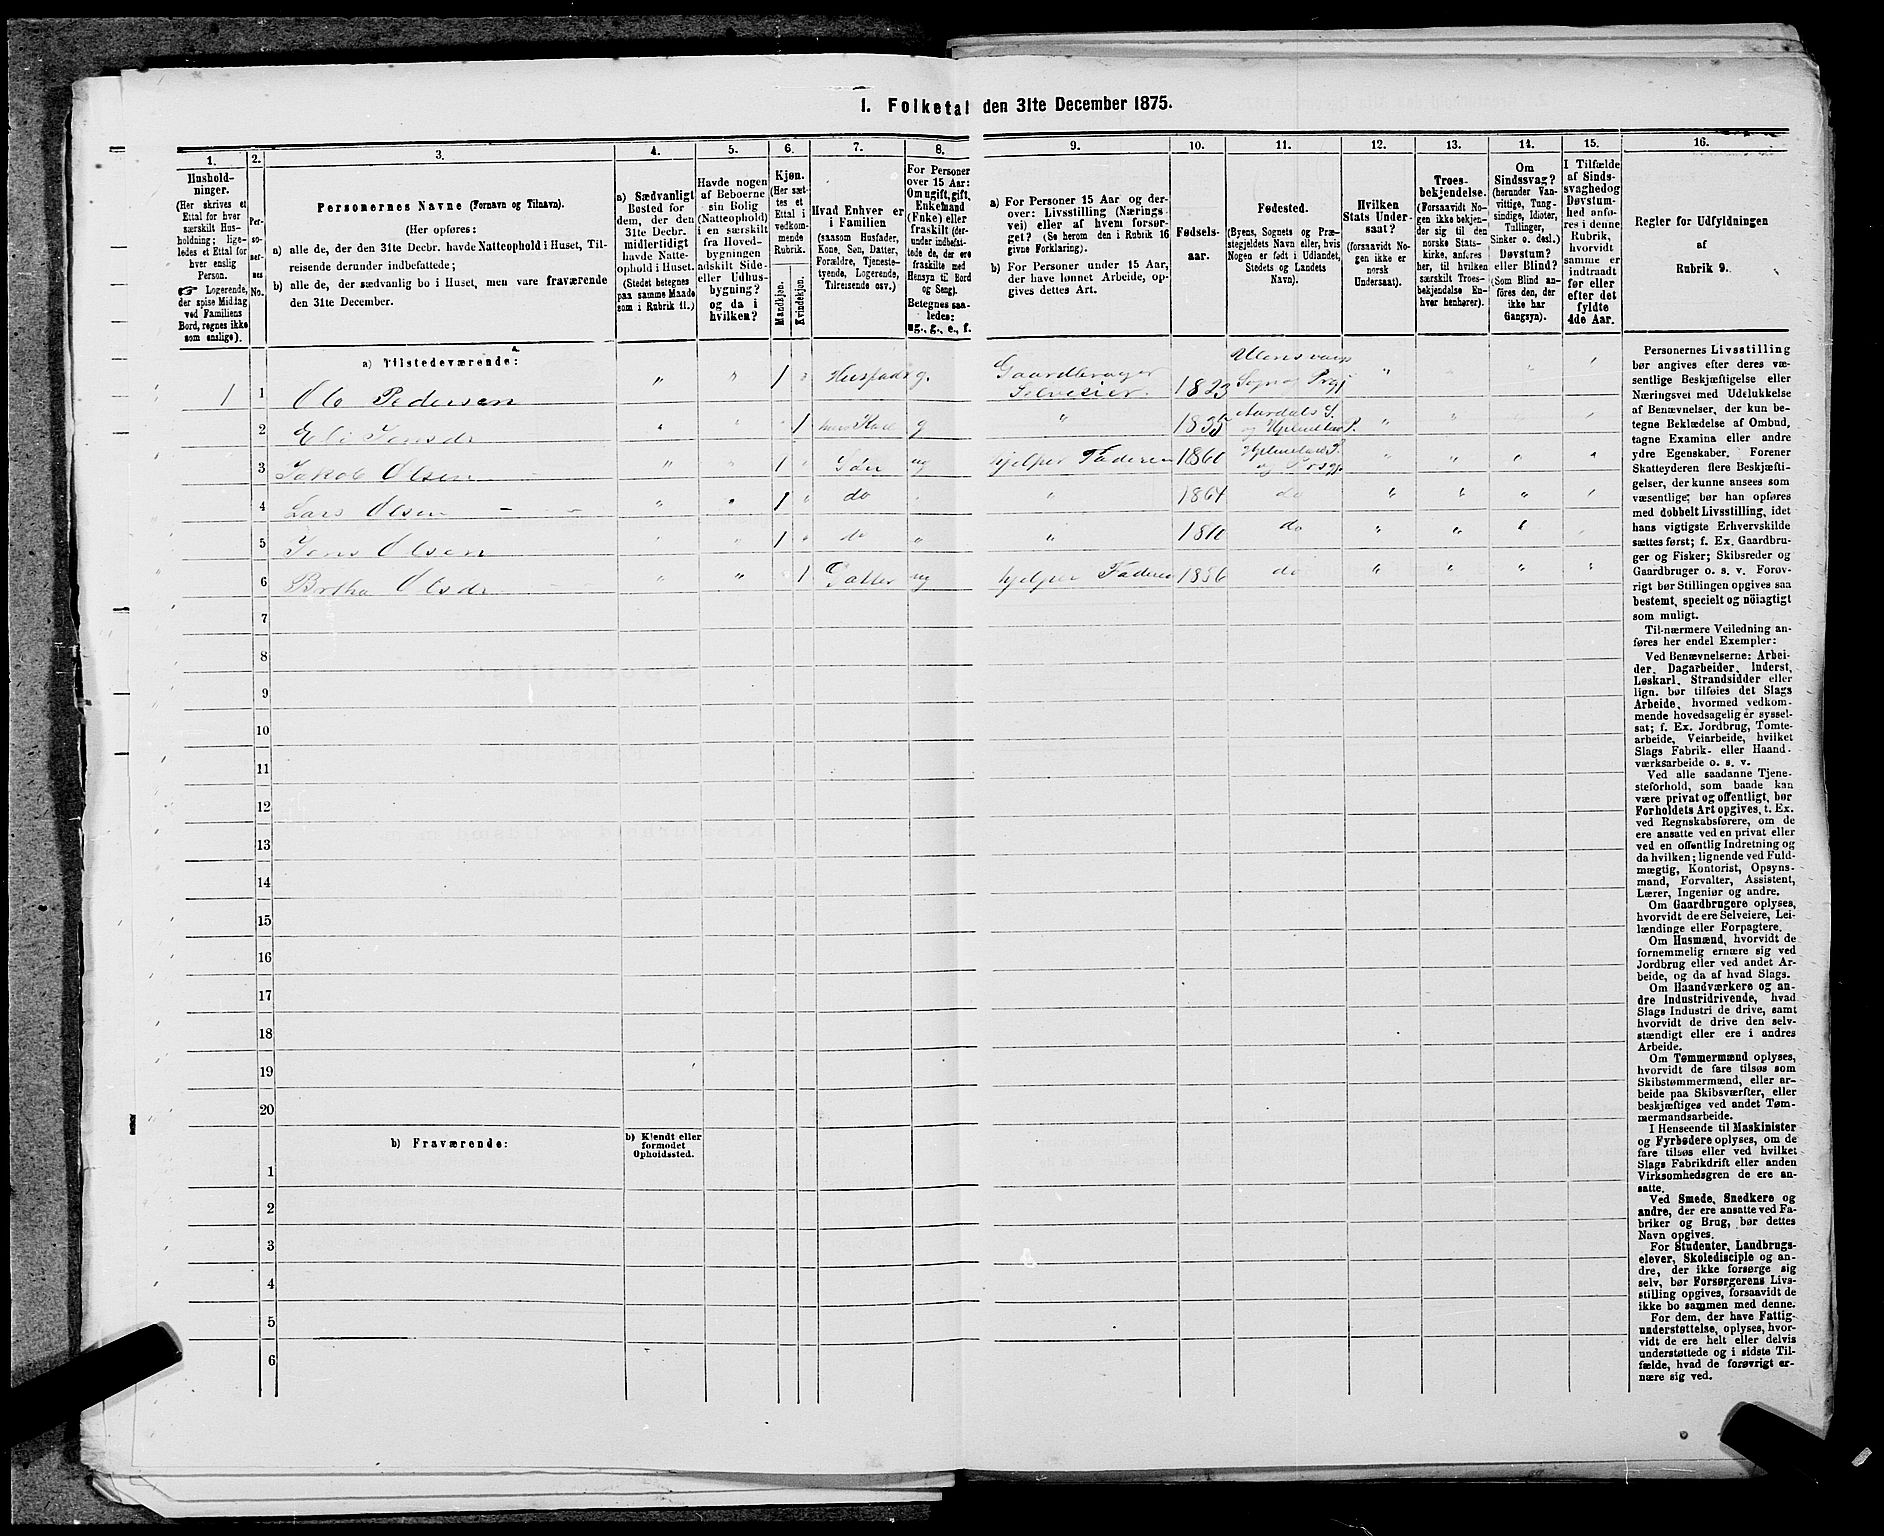 I. Folketal den 31te December 1875.
1.
Husholdninger.
(Her skrives et
Ettal for hver
særskilt Husholdning; ligeledes
et Ettal for
hver enslig
Person.
☞ Logerende,
der spise Middag
ved Familiens
Bord, regnes ikke
som enslige).
2.
Personernes
No.
3.
Personernes Navne (Fornavn og Tilnavn).
(Her opføres:
a) alle de, der den 31te Decbr. havde Natteophold i Huset, Tilreisende derunder indbefattede;
b) alle de, der sædvanlig bo i Huset, men vare fraværende
den 31te December.
4.
a) Sædvanligt
Bosted for
dem, der den
31te Decbr.
midlertidigt
havde Natteophold i Huset.
(Stedet betegnes
paa samme Maade
som i Rubrik 11.)
5.
Havde nogen
af Beboerne
sin Bolig
(Natteophold)
i en særskilt
fra Hovedbygningen
adskilt Side-
eller Udhusbygning?
og da i
hvilken?
6.
Kjøn.
(Her sættes et
Ettal i
vedkommende
Rubrik.
Mandkjøn.
Kvindekjøn.
7.
Hvad Enhver er
i Familien
(saasom Husfader,
Kone, Søn, Datter,
Forældre, Tjenestetyende, Logerende,
Tilreisende osv.)
8.
For Personer
over 15 Aar:
Om ugift, gift,
Enkemand
(Enke) eller
fraskilt (derunder indbefattede de, der ere
fraskilte med
Hensyn til Bord
og Seng).
Betegnes saaledes:
ug., g., e., f.
9.
a) For Personer 15 Aar og derover: Livsstilling (Næringsvei) eller af hvem forsørget? (Se herom den i Rubrik 16
givne Forklaring.)
b) For Personer under 15 Aar,
der have lønnet Arbeide, opgives dettes Art.
10.
Fødselsaar.
11.
Fødested.
(Byens, Sognets og Præstegjeldets Navn eller, hvis
Nogen er født i Udlandet,
Stedets og Landets
Navn).
12.
Hvilken
Stats Undersaat?
(forsaavidt Nogen ikke er
norsk
Undersaat).
13.
Troesbekjendelse.
(Forsaavidt Nogen ikke bekjender sig til den
norske Statskirke, anføres
her, til hvilken
særskilt Troesbekjendelse Enhver henhører).
14.
Om
Sindssvag?
(herunder Vanvittige, Tungsindige, Idioter,
Tullinger,
Sinker o. desl.)
Døvstum?
eller Blind?
(Som Blind anføres den, der
ikke har
Gangsyn).
15.
I Tilfælde
af Sindssvaghed og
Døvstumhed anføres i denne
Rubrik,
hvorvidt
samme er
indtraadt
før eller
efter det
fyldte
4de Aar.
16.
Regler for Udfyldningen
af
Rubrik 9.
a) Tilstedeværende:
1 1 Ole Pedersen " " 1 " Husfader g. Gaardbruger Selveier 1823 Ullensvangs Sogn og Prgj "
2 Eli Jensdr " " " 1 hans Kone g " Aardals S. og Hjelmeland P. "
3 Jakob Olsen " " 1 " Søn ug hjelper Faderen 1860 Hjelmelands S. og Prsgj. " " " "
4 Lars Olsen " " 1 " do " " 1864 do " " " "
5 Jens Olsen " " 1 " do " " do " " " "
6 Brtha Olsdr " " " 1 Datter ug hjelper Faderen 1856 do " " " "
7
8
9
10
11
12
13
14
15
16
17
18
19
20
b) Fraværende:
b) Kjendt eller
formodet
Opholdssted.
1
2
3
4
5
6
Personernes Livsstilling
bør angives efter deres væsentlige Beskjæftigelse eller
Næringsvei med Udelukkelse
af Benævnelser, der kun betegne Beklædelse af Ombud,
tagne Examina eller andre
ydre Egenskaber. Forener
Skatteyderen flere Beskjæftigelser, der kunne ansees som
væsentlige, bør han opføres
med dobbelt Livsstilling, idet
hans vigtigste Erhvervskilde
sættes først; f. Ex. Gaardbruger og Fisker; Skibsreder og
Gaardbruger o. s. v. Forøvrigt bør Stillingen opgives saa
bestemt, specielt og nöiagtigt
som muligt.
Til nærmere Veiledning anføres her endel Exempler:
Ved Benævnelserne: Arbeider, Dagarbeider, Inderst,
Løskarl, Strandsidder eller
lign. bør tilføies det Slags
Arbeide, hvormed vedkommende hovedsagelig er sysselsat; f. Ex. Jordbrug, Tomtearbeide, Veiarbeide, hvilket
Slags Fabrik- eller Haandværksarbeide o. s. v.
Ved alle saadanne Tjenesteforhold, som baade kan
være privat og offentligt, bør
Forholdets Art opgives, t. Ex.
ved Regnskabsførere, om de
ere ansatte ved en privat eller
ved en offentlig Indretning og
da hvilken; lignende ved Fuldmægtig, Kontorist, Opsynsmand, Forvalter, Assistent,
Lærer, Ingeniør og andre.
Om Gaardbrugere oplyses,
hvorvidt de ere Selveiere, Leilændinge eller Forpagtere.
Om Husmænd, hvorvidt de
fornemmelig ernære sig ved
Jordbrug eller ved andet Arbeide, og da af hvad Slags.
Om Haandværkere og andre Industridrivende, hvad
Slags Industri de drive, samt
hvorvidt de drive den selvstændigt eller ere i andres
Arbeide.
Om Tømmermænd oplyses,
hvorvidt de fare tilsøs som
Skibstømmermænd, eller arbeide paa Skibsværfter, eller
beskjæftiges ved andet Tømmermandsarbeide.
I Henseende til Maskinister
og Fyrbødere oplyses, om de
fare tilsøs eller ved hvilket
Slags Fabrikdrift eller anden
Virksomhedsgren de ere ansatte.
Ved Smede, Snedkere og
andre, der ere ansatte ved Fabriker og Brug, bør dettes
Navn opgives.
For Studenter, Landbrugselever, Skoledisciple og andre, der ikke forsørge sig
selv, bør Forsørgerens Livsstilling opgives, forsaavidt de
ikke bo sammen med denne.
For dem, der have Fattigunderstøttelse, oplyses, hvorvidt de ere helt eller delvis
understøttede og i sidste Tilfælde, hvad de forøvrigt ernære sig ved.